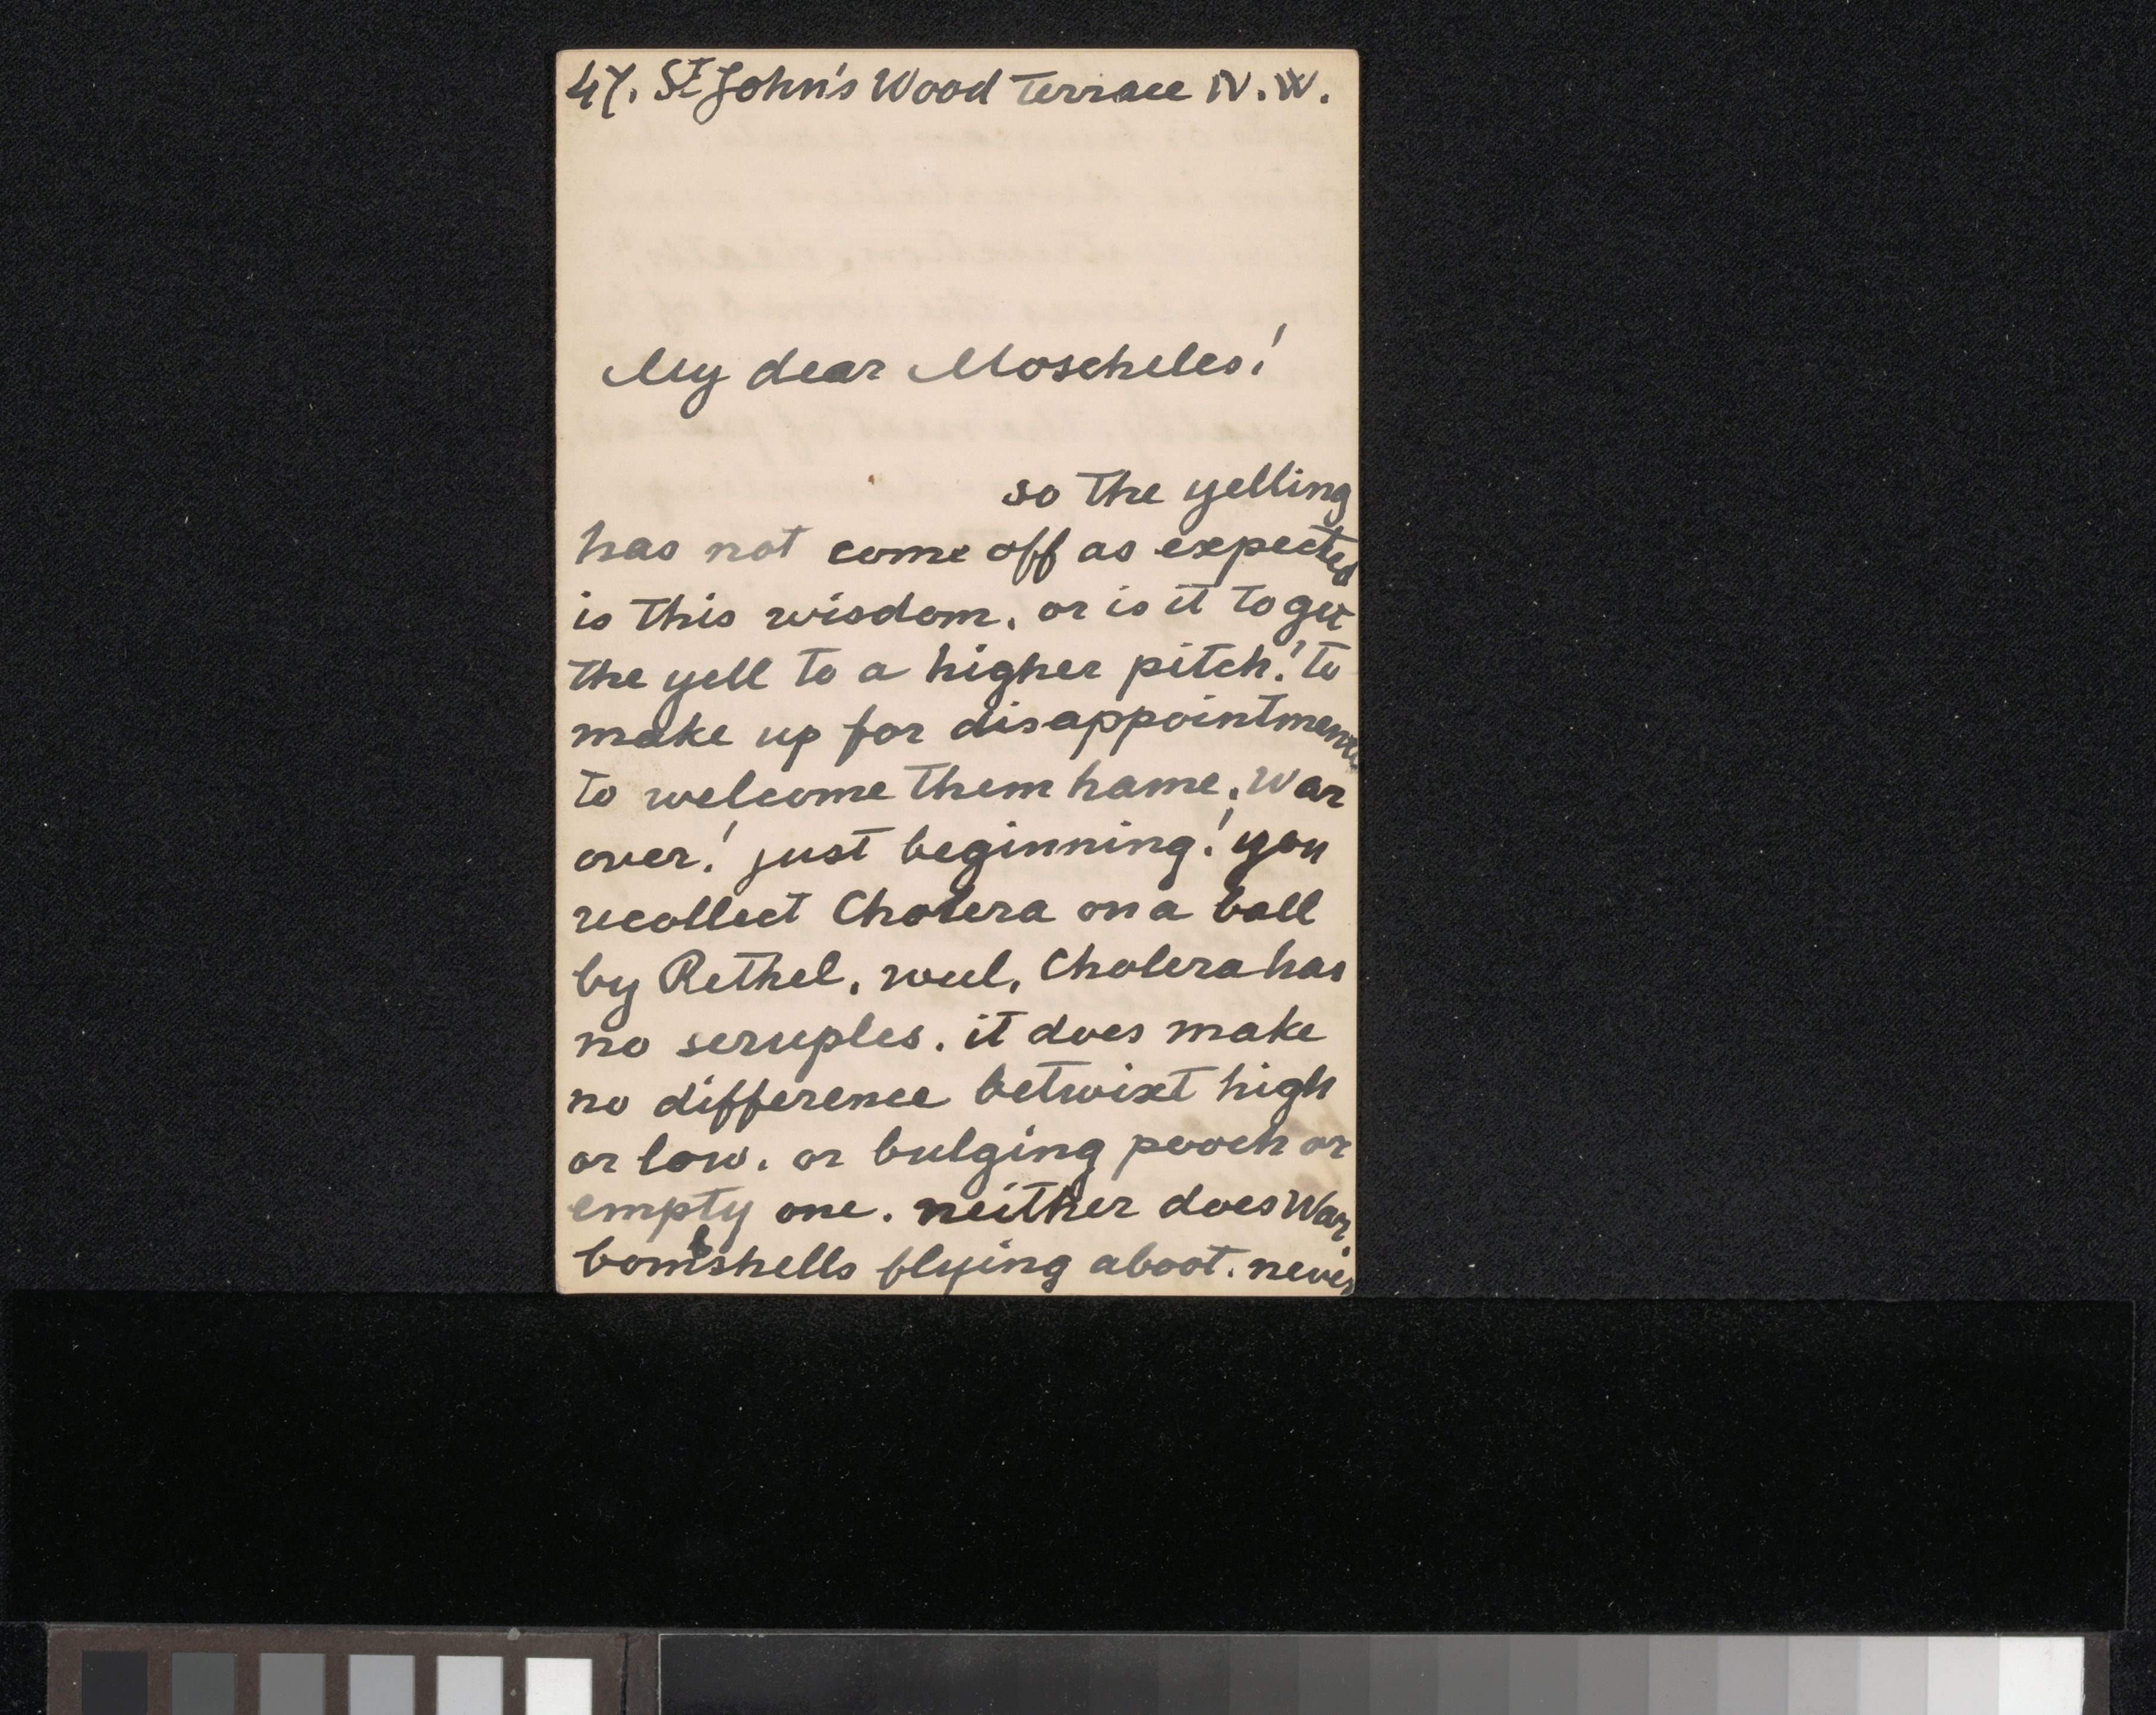 47. St John's Wood Terrace N.W.
My dear Moscheles!
so the yelling
has not come off as expected
is this wisdom, or is it to get
the yell to a higher pitch! to
make up for disappointment
to welcome them hame. War
over! just beginning! you
recollect Cholera on a ball
by Rethel, weel, Cholera has
no scruples. it does make
no difference betwixt high
or low. or bulging pooch or
empty one. neither does War,
bombshells flying aboot. never